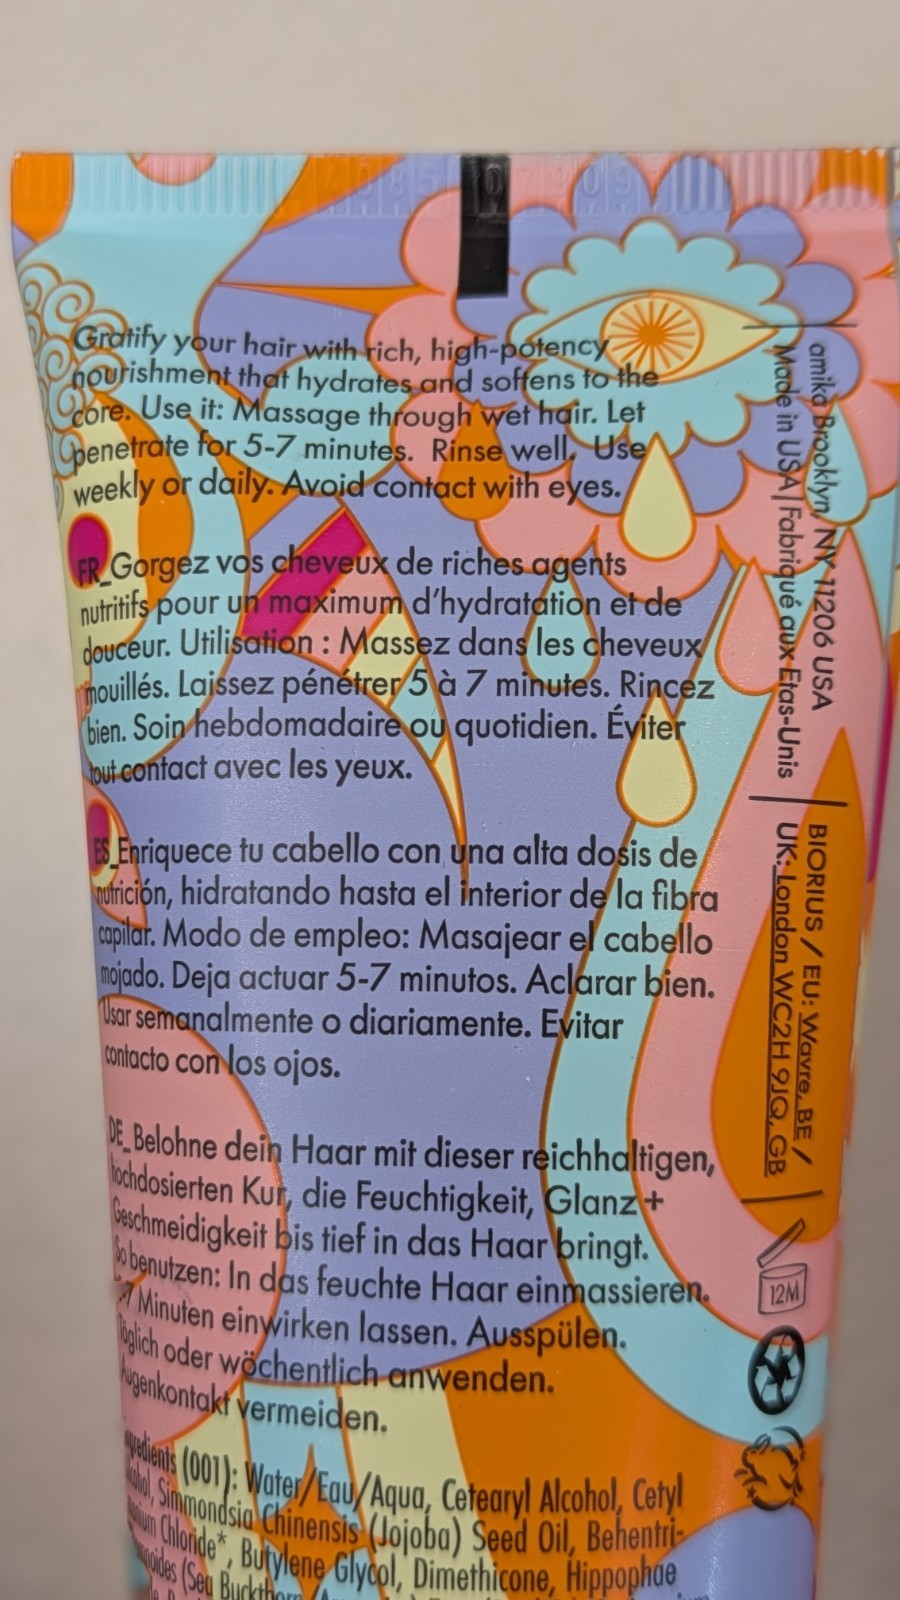 Gratify your hair with rich, high-potency
nourishment that hydrates and softens to the
core. Use it: Massage through wet hair. Let
penetrate for 5-7 minutes. Rinse well. Use
weekly or daily. Avoid contact with eyes.
FR_Gorgez vos cheveux de riches agents
nutritifs pour un maximum d'hydratation et de
douceur. Utilisation : Massez dans les cheveux
mouillés. Laissez pénétrer 5 à 7 minutes. Rincez
bien. Soin hebdomadaire ou quotidien. Éviter
tout contact avec les yeux.
ES_Enriquece tu cabello con una alta dosis de
nutrición, hidratando hasta el interior de la fibra
capilar. Modo de empleo: Masajear el cabello
mojado. Deja actuar 5-7 minutos. Aclarar bien.
Usar semanalmente o diariamente. Evitar
contacto con los ojos.
DE_Belohne dein Haar mit dieser reichhaltigen,
hochdosierten Kur, die Feuchtigkeit, Glanz +
Geschmeidigkeit bis tief in das Haar bringt.
So benutzen: In das feuchte Haar einmassieren.
-7 Minuten einwirken lassen. Ausspülen.
Täglich oder wöchentlich anwenden.
Augenkontakt vermeiden.
Ingredients (001): Water/Eau/Aqua, Cetearyl Alcohol, Cetyl
Alcohol, Simmondsia Chinensis (Jojoba) Seed Oil, Behentri-
monium Chloride*, Butylene Glycol, Dimethicone, Hippophae
(Sea Buckthorn
amika Brooklyn, NY 11206 USA
Made in USA | Fabriqué aux Etas-Unis
BIORIUS / EU: Wavre, BE /
UK: London WC2H 9JQ, GB
12M